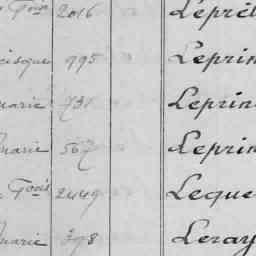 Gois 2016 Leprêt
cisque 995 Leprin
marie 731 Leprin
marie 567 Leprin
Gois 2449 Leque
marie 398 Leray